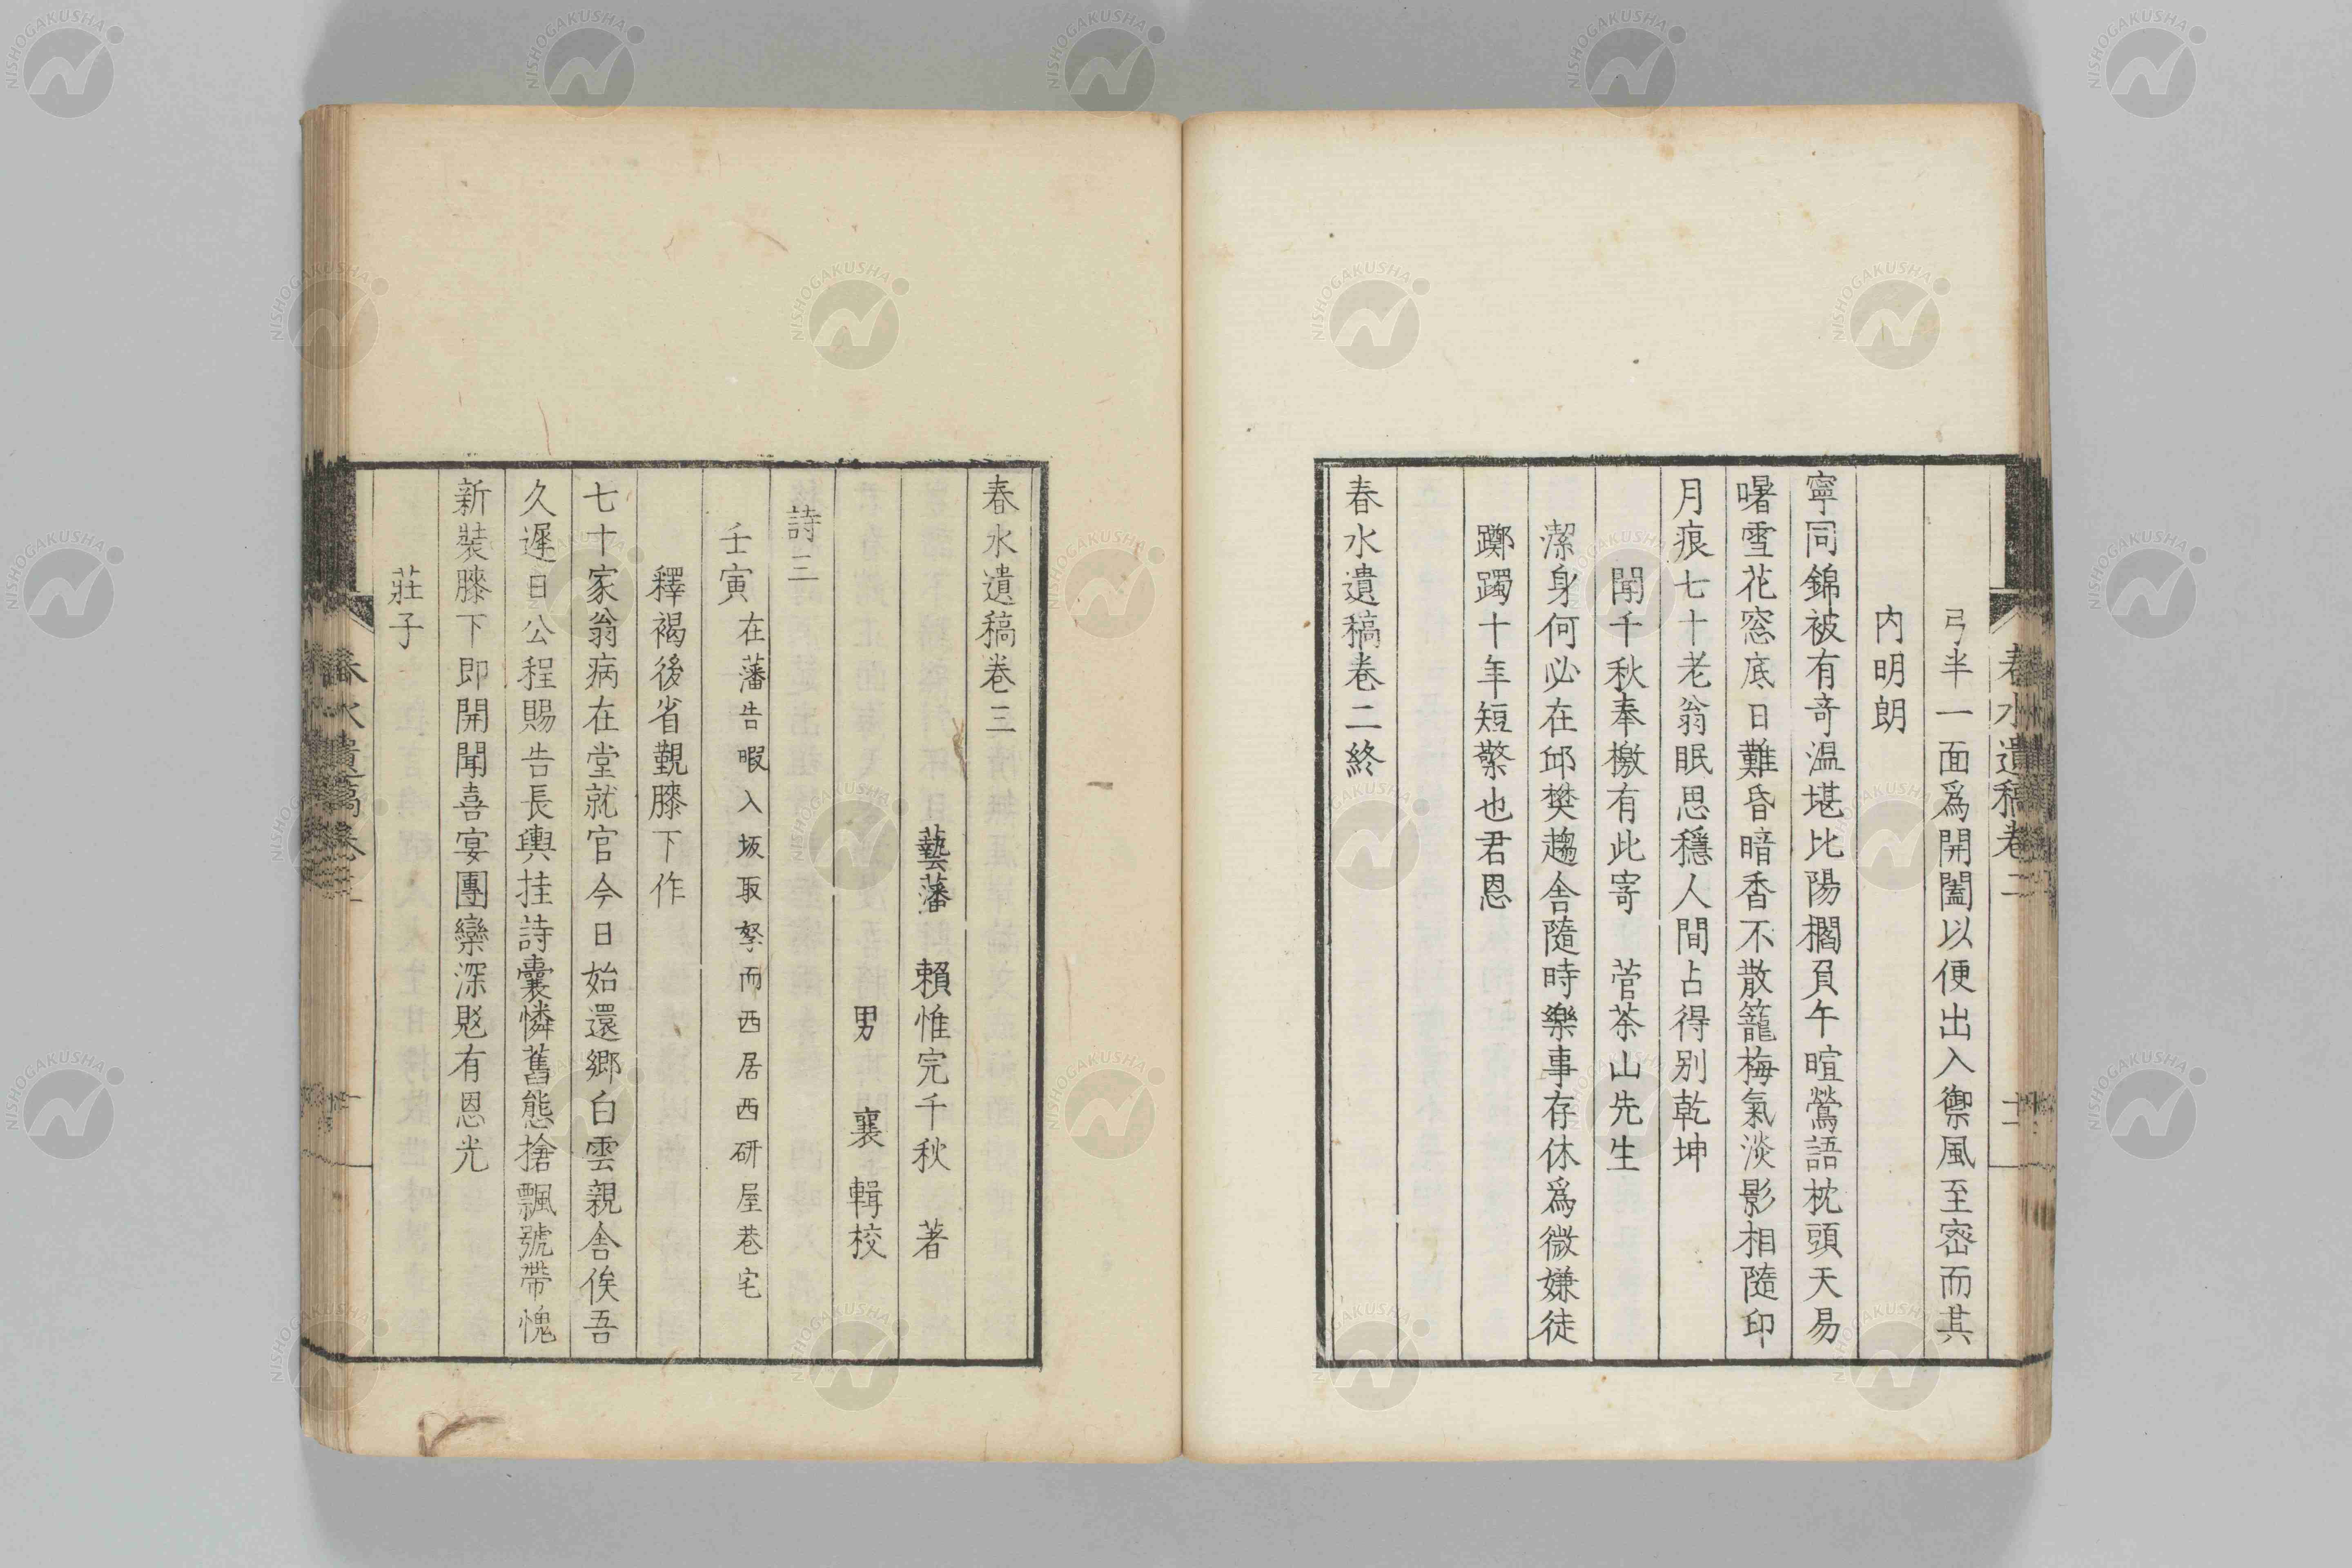 春水遺稿卷二
弓半一面爲開闔以便出入禦風至密而其
内明朗
寧同錦被有奇温堪比陽櫩負午暄鶯語枕頭天易
曙雪花窓底日難昏暗香不散籠梅氣淡影相隨印
月痕七十老翁眠思穩人間占得别乾坤
聞千秋奉檄有此寄 菅茶山先生
潔身何必在邱樊趨舎隨時樂事存休爲微嫌徒
躑躅十年短檠也君恩
春水遺稿卷二終
春水遺稿卷三
藝藩 賴惟完千秋 著
男 襄 輯校
詩三
壬寅 在藩告暇入坂取孥而西居西研屋巷宅
釋褐後省覲膝下作
七十家翁病在堂就官今日始還鄉白雲親舎俟吾
久遲日公程賜告長輿挂詩囊憐舊態搶飄號帶愧
新裝膝下即開聞喜宴團欒深覎有恩光
莊子
春水遺稿卷三